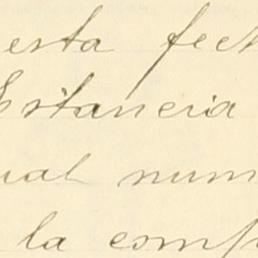 esta fech
Estancia
ual num
la comp